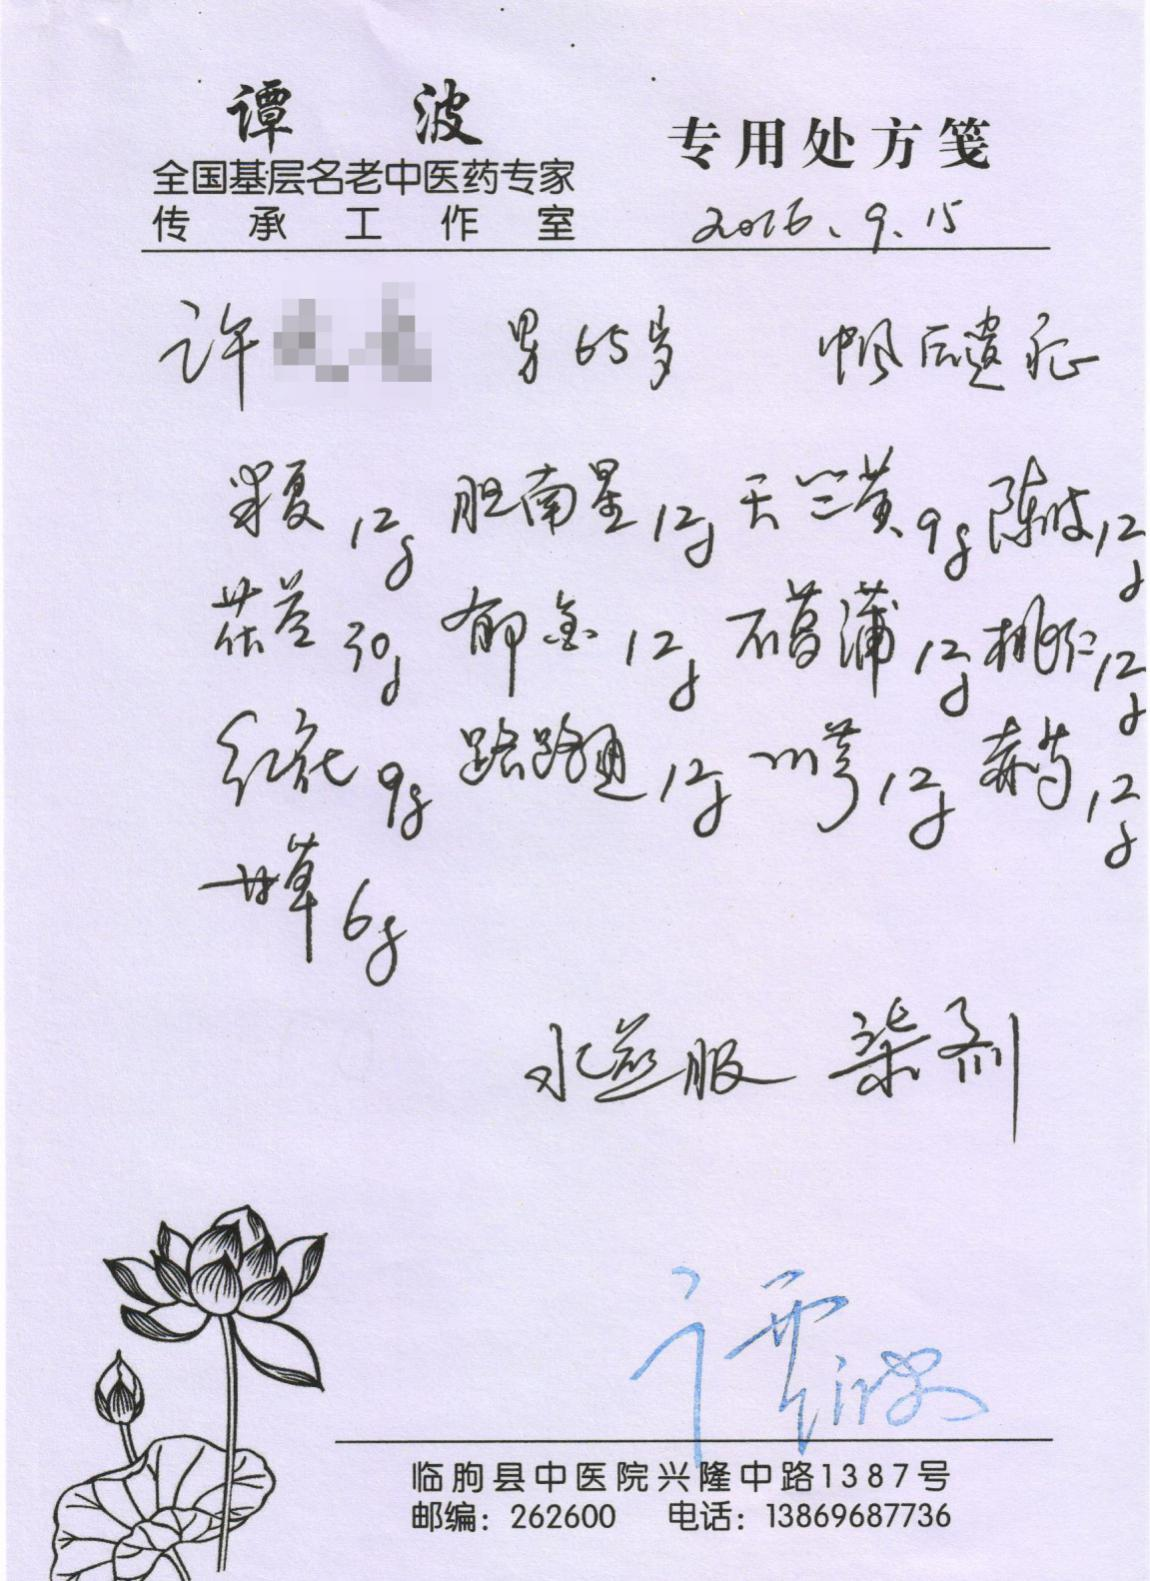 谭 波
全国基层名老中医药专家
传承工作室
专用处方笺
2016.9.15
许 男 65岁 中风后遗症
半夏12g 胆南星12g 天竺黄9g 陈皮12g
茯苓30g 郁金12g 石菖蒲12g 桃仁12g
红花9g 路路通12g 川芎12g 赤芍12g
甘草6g
水煎服 柒剂
谭波
临朐县中医院兴隆中路1387号
邮编：262600 电话：13869687736